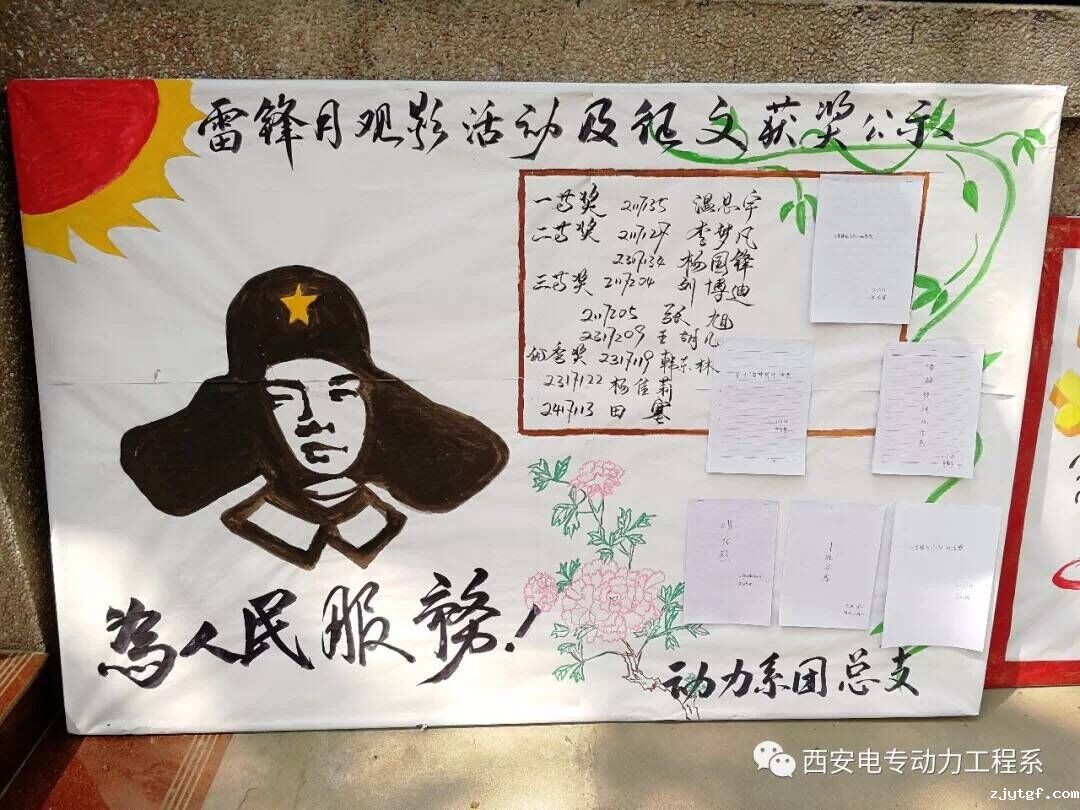 雷锋月观影活动及征文获奖公示
一等奖 2117135 温思宇
二等奖 2117127 李梦凡
2317134 杨国锋
三等奖 2117204 刘博迪
2117205 张旭
2317209 王胡凡
优秀奖 2317119 韩东林
2317122 杨佳莉
2417113 田塞
為人民服務!
动力系团总支
西安电专动力工程系
zjytgf.com